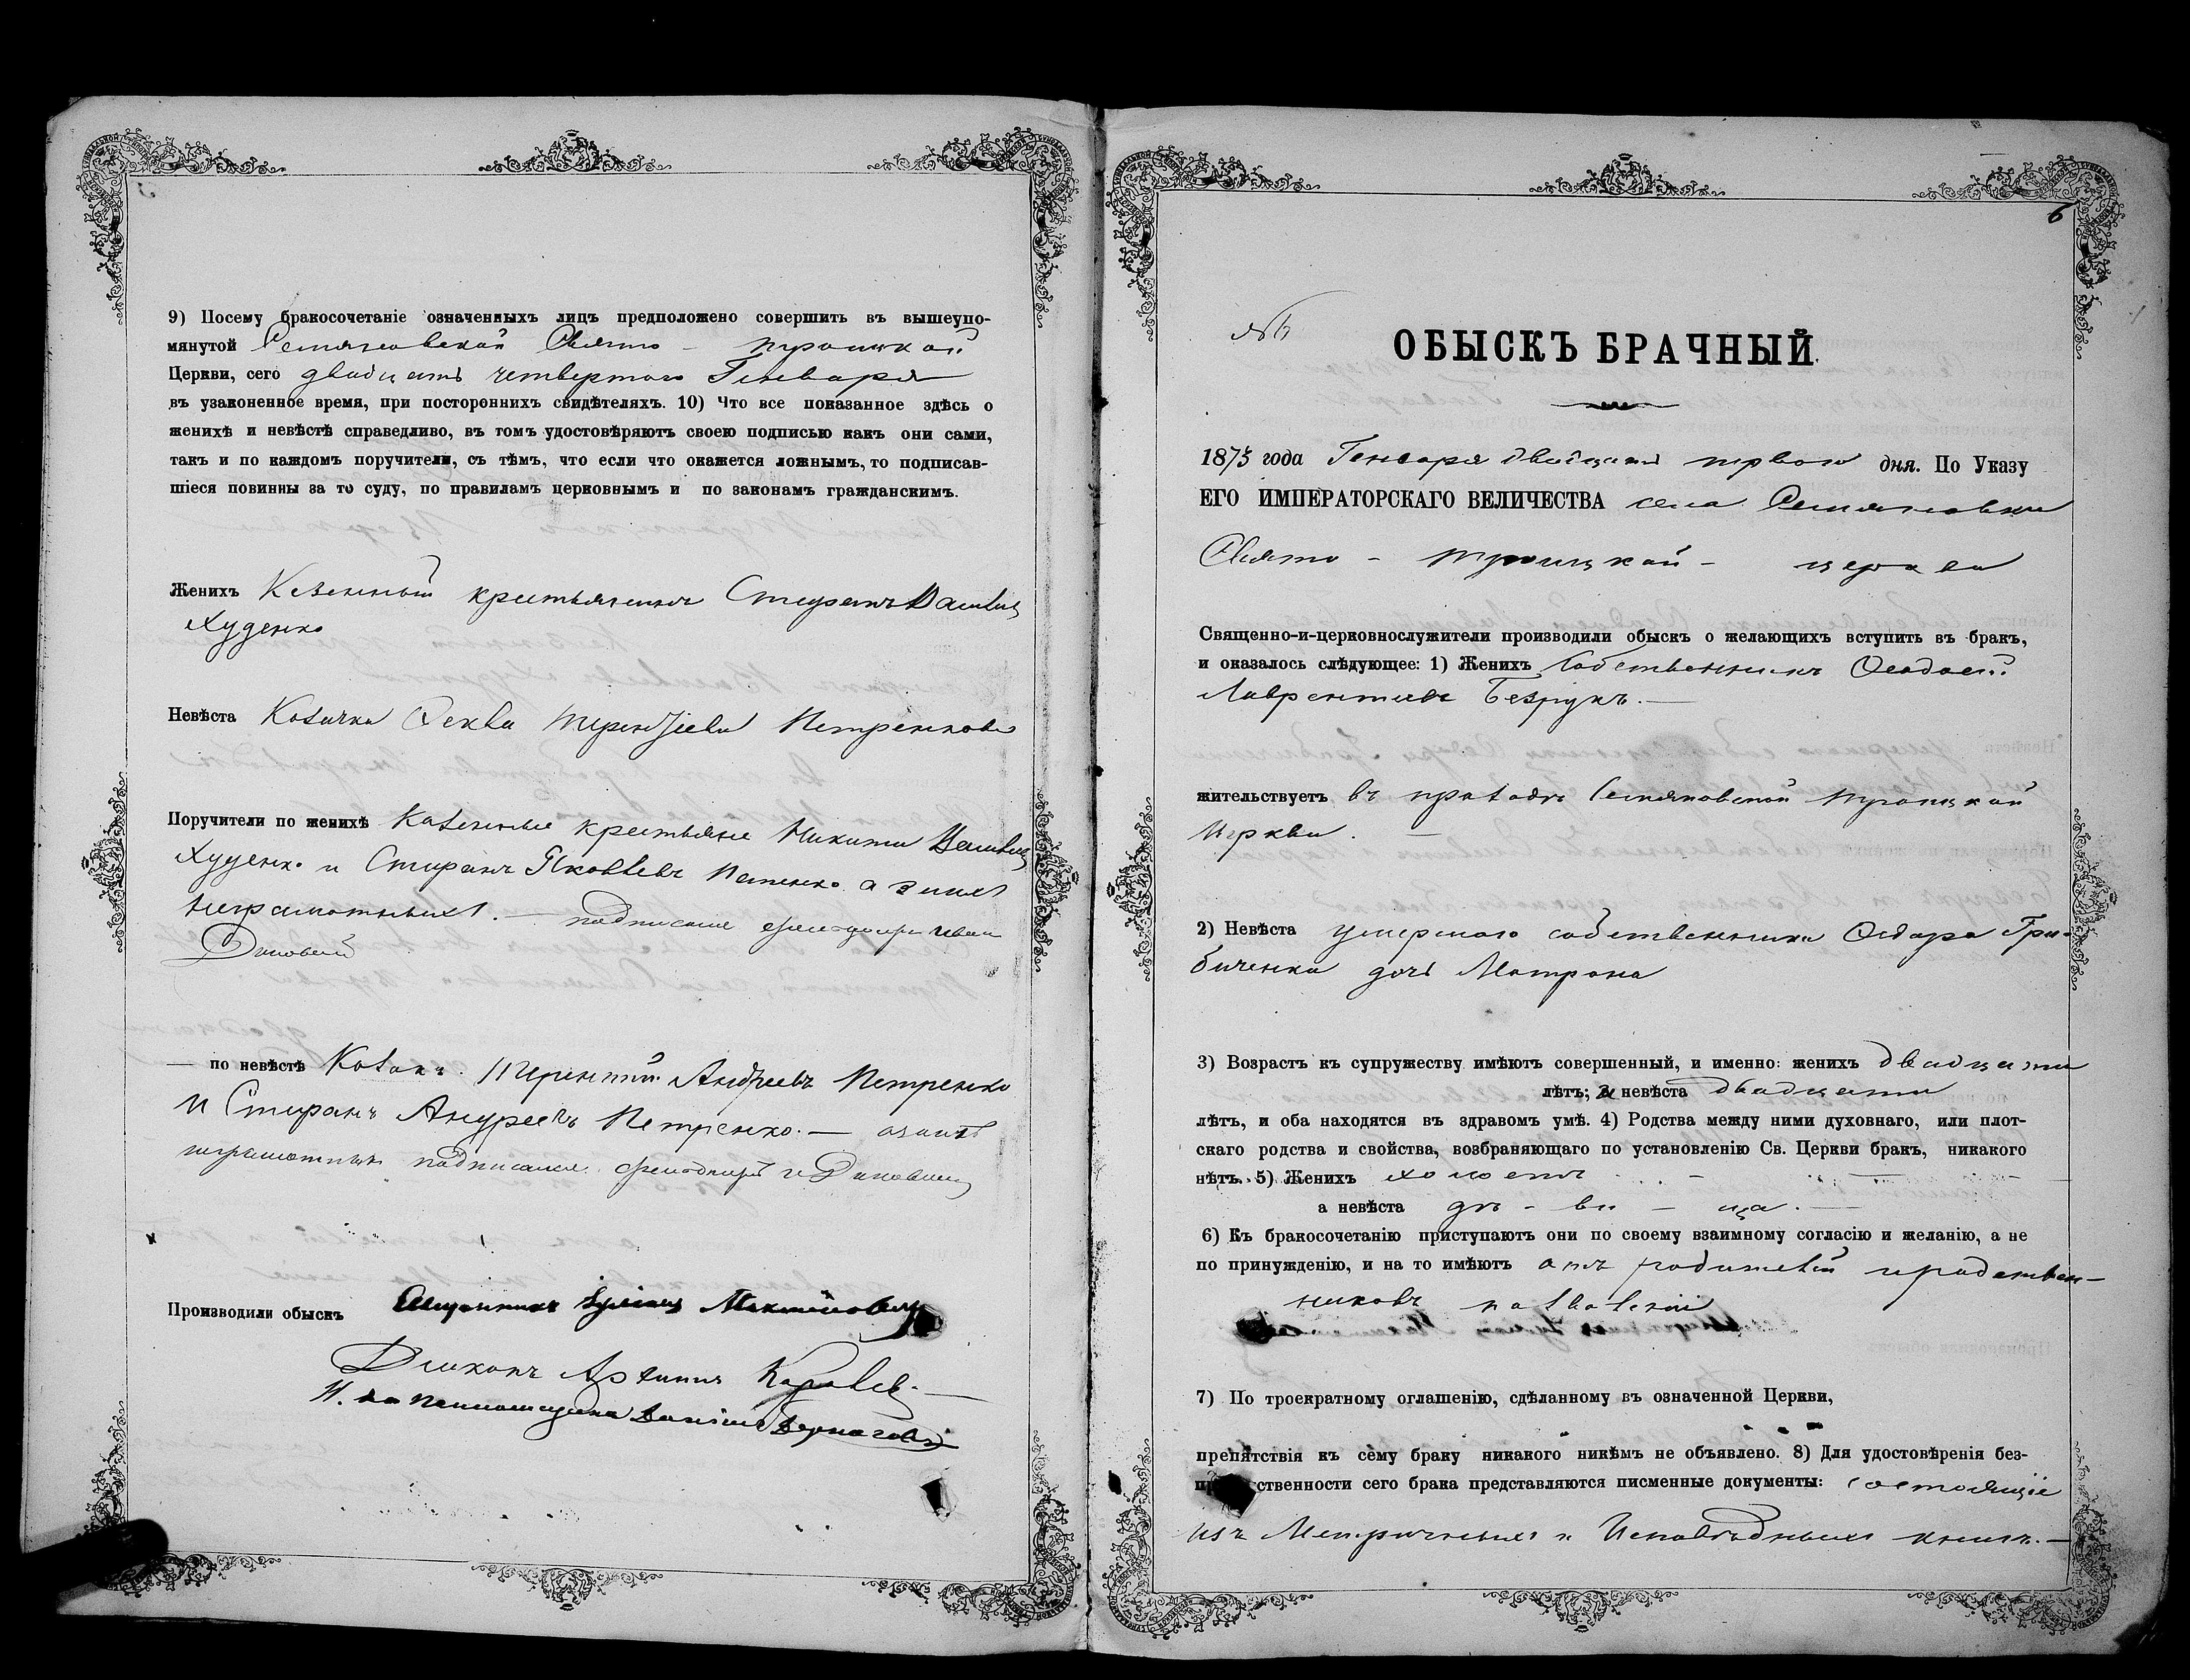 9) Посему бракосочетаніе означенныхъ лицъ предположено совершить въ вышеупо-
мянутой Семяновской Свято - троицкой
Церкви, сего двадцать четвертого Генваря
въ узаконенное время, при постороннихъ свидѣтеляхъ. 10) Что все показанное здѣсь о
женихѣ и невѣстѣ справедливо, въ томъ удостовѣряютъ своею подписью какъ они сами,
такъ и по каждомъ поручители, съ тѣмъ, что если что окажется ложнымъ, то подписав-
шіеся повинны за то суду, по правиламъ церковнымъ и по законамъ гражданскимъ.
Женихъ Казенный крестьянинъ Стефанъ
Худенко
Невѣста Козачка Фекла Терентіева Петренкова
Поручители по женихѣ Казенные крестьяне Никита
Худенко и Стефанъ Яковлевъ а за нихъ
неграмотныхъ. —
— по невѣстѣ Козаки Терентій Андреевъ Петренко
и Стефанъ Андреевъ Петренко. — а за нихъ
неграмотныхъ
Производили обыскъ Священникъ Максимовичъ
Діаконъ
6
№ 6
ОБЫСКЪ БРАЧНЫЙ.
1875 года Генваря двадцать первого дня. По Указу
ЕГО ИМПЕРАТОРСКАГО ВЕЛИЧЕСТВА села Семяновки
Свято - троицкой - церкви
Священно-и-церковнослужители производили обыскъ о желающихъ вступить въ бракъ,
и оказалось слѣдующее: 1) Женихъ Собственникъ Феодосій
Лаврентіевъ Безрукъ. —
жительствуетъ въ приходѣ Семяновской троицкой
церкви. —
2) Невѣста умершого собственника Федора Гри-
биченка дочь Матрона
3) Возрастъ къ супружеству имѣютъ совершенный, и именно: женихъ двадцати
лѣтъ; а невѣста двадцати
лѣтъ, и оба находятся въ здравомъ умѣ. 4) Родства между ними духовнаго, или плот-
скаго родства и свойства, возбраняющаго по установленію Св. Церкви бракъ, никакого
нѣтъ. 5) Женихъ холостъ
а невѣста дѣ - ви - ца. —
6) Къ бракосочетанію приступаютъ они по своему взаимному согласію и желанію, а не
по принужденію, и на то имѣютъ отъ родителей и родствен-
никовъ позволеніе
7) По троекратному оглашенію, сдѣланному въ означенной Церкви,
препятствія къ сему браку никакого никѣмъ не объявлено. 8) Для удостовѣренія без-
ственности сего брака представляются писменные документы: состоящіе
изъ Метричныхъ и Исповѣдныхъ книгъ. —